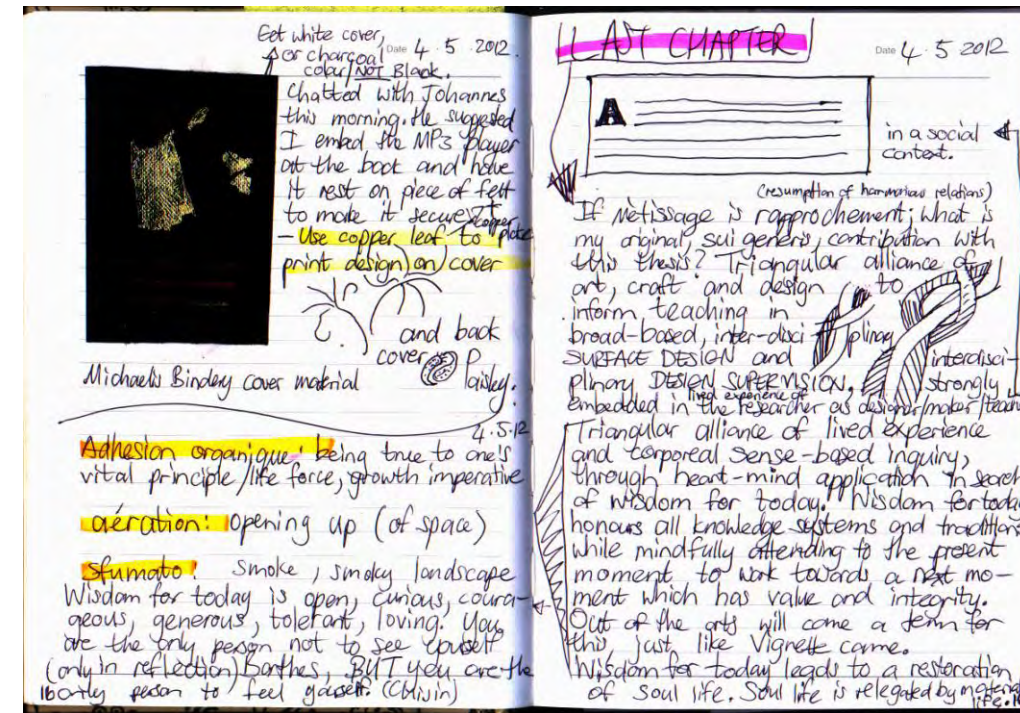 Get white cover,
or charcoal
color/NOT Black.
Date 4.5.2012.
Chatted with Johannes
this morning. He suggested
I embed the MP3 player
at the back and have
it rest on piece of felt
to make it secure.
- Use copper leaf to
print design on cover
and back
cover Paisley.
Michaelis Bindery cover material
4.5.12
Adhesion organique: being true to one's
vital principle/life force, growth imperative
aération: Opening up (of space)
Sfumato: Smoke, smoky landscape
Wisdom for today is open, curious, coura-
geous, generous, tolerant, loving. You
are the only person not to see yourself
(only in reflection) Barthes, BUT you are the
only person to feel yourself.
LAST CHAPTER
Date 4 5 2012
A
in a social
context.
(resumption of harmonious relations)
If Métissage is rapprochement; what is
my original, sui generis, contribution with
this thesis? Triangular alliance of
art, craft and design to
inform teaching in
broad-based, inter-disci plinary
SURFACE DESIGN and interdisci-
plinary DESIGN SUPERVISION, strongly
lived experience of
embedded in the researcher as designer/maker/teach
Triangular alliance of lived experience
and corporeal sense-based inquiry,
through heart-mind application in search
of wisdom for today. Wisdom for today
honours all knowledge systems and traditions
while mindfully attending to the present
moment to work towards a next mo-
ment which has value and integrity.
Out of the arts will come a term for
this, just like Vignette came.
Wisdom for today leads to a restoration
of Soul life. Soul life is relegated by material
life.